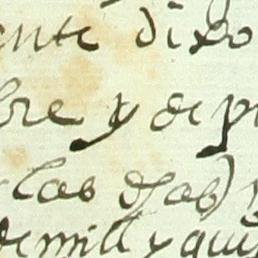 ente dixo
bre y de p
las dos)
de mill y qui